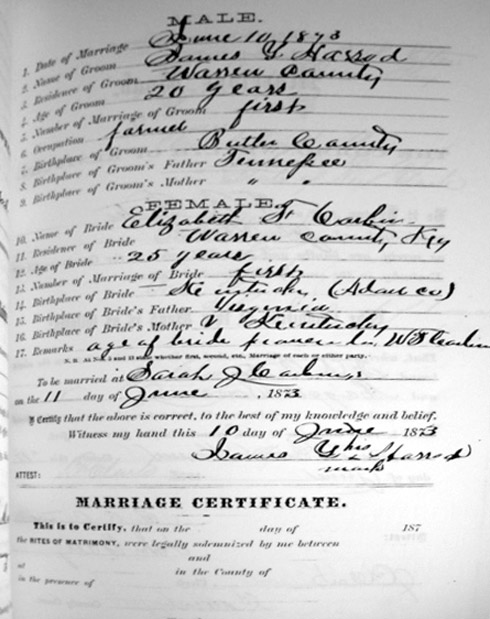 MALE.
1. Date of Marriage June 10, 1873
2. Name of Groom James Y Harrod
3. Residence of Groom Warren County
4. Age of Groom 20 years
5. Number of Marriage of Groom first
6. Occupation farmer
7. Birthplace of Groom Butler County
8. Birthplace of Groom's Father Tennessee
9. Birthplace of Groom's Mother " "
FEMALE.
10. Name of Bride Elizabeth
11. Residence of Bride Warren County Ky
12. Age of Bride 25 years
13. Number of Marriage of Bride first
14. Birthplace of Bride Kentucky (Adair co)
15. Birthplace of Bride's Father Virginia
16. Birthplace of Bride's Mother Kentucky
17. Remarks age of bride proven by
N. B. At Nos. 5 and 13 state whether first, second, etc., Marriage of each or either party.
To be married at Sarah J
on the 11 day of June 1873
I Certify that the above is correct, to the best of my knowledge and belief.
Witness my hand this 10 day of June 1873
James Y his Harrod
mark
ATTEST:
MARRIAGE CERTIFICATE.
This is to Certify, that on the day of 187
the RITES OF MATRIMONY, were legally solemnized by me between
and
at in the County of
in the presence of